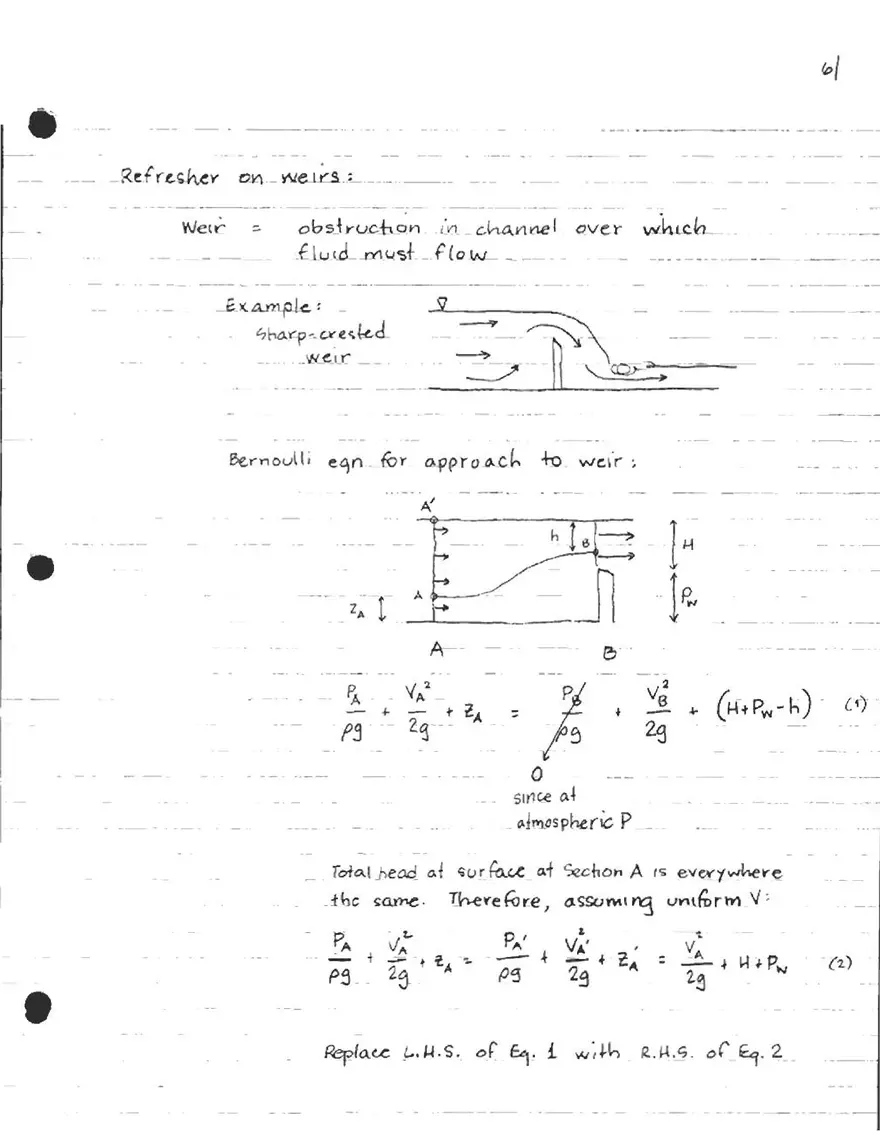 6/
Refresher on weirs:
Weir = obstruction in channel over which
fluid must flow
Example:
Sharp-crested
weir
∇
Bernoulli eqn for approach to weir:
A'
h
B
H
A
Z_A
P_W
A B
P_A/ρg + V_A²/2g + Z_A = P_B/ρg + V_B²/2g + (H+P_W-h) (1)
0
since at
atmospheric P
Total head at surface at Section A is everywhere
the same. Therefore, assuming uniform V:
P_A/ρg + V_A²/2g + Z_A = P_A'/ρg + V_A'²/2g + Z_A' = V_A²/2g + H+P_W (2)
Replace L.H.S. of Eq. 1 with R.H.S. of Eq. 2